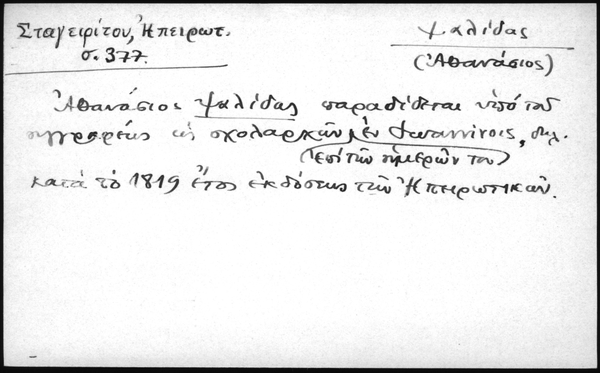 Σταγειρίτου, Ἠπειρωτ.
σ. 377.
Ψαλίδας
(Ἀθανάσιος)
Ἀθανάσιος Ψαλίδας παραδίδεται ὑπό τοῦ
συγγραφέως ὡς σχολαρχῶν ἐν Ἰωαννίνοις, δηλ.
(ἐπί τῶν ἡμερῶν του)
κατά τό 1819 ἔτος ἐκδόσεως τῶν Ἠπειρωτικῶν.